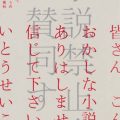 説禁止
賛同す
皆さん　こん
おかしな小説
ありはしませ
信じて下さい
いとうせいこ